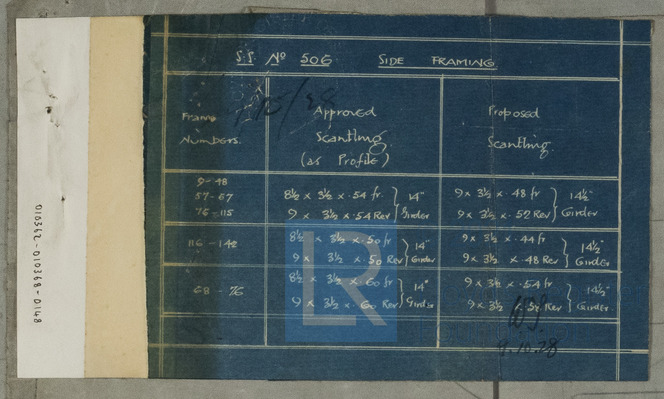 S.S. Nº 506 SIDE FRAMING
Frame Numbers.
Approved Scantling (as Profile)
Proposed Scantling.
9-48
57-67
76-115
8½ x 3½ x .54 fr.
9 x 3½ x .54 Rev
14" Girder
9 x 3½ x .48 fr
9 x 3½ x .52 Rev
14½" Girder
116 - 142
8½ x 3½ x .50 fr
9 x 3½ x .50 Rev
14" Girder
9 x 3½ x .44 fr
9 x 3½ x .48 Rev
14½" Girder
68 - 76
8½ x 3½ x .60 fr
9 x 3½ x .60 Rev
14" Girder
9 x 3½ x .54 fr
9 x 3½ x Rev
14½" Girder
9.10.28
LR
010362-010368-0148